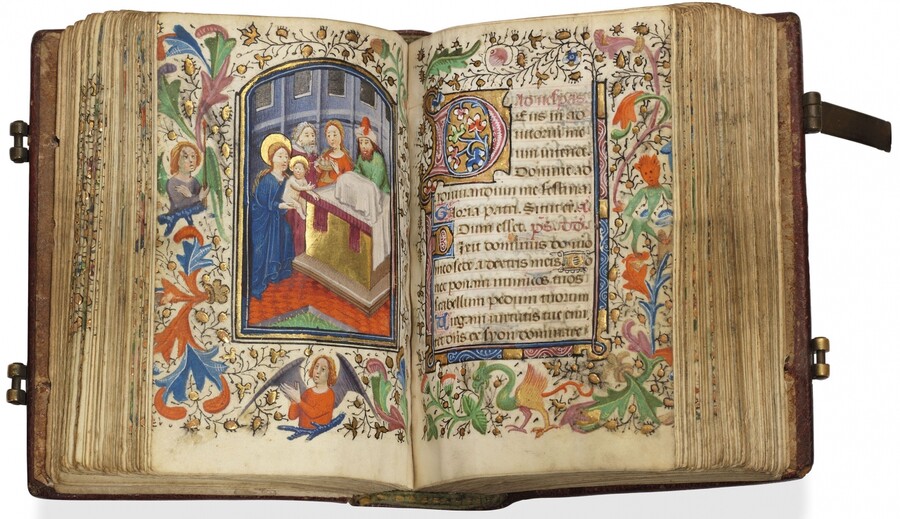 Ad vesperas.
Deus in ad
iutorium me
um intende.
Domine ad
iuvandum me festina.
Gloria patri. Sicut er.
Dum esset. ps.
Dixit dominus domino
meo sede a dextris meis Do
nec ponam inimicos tuos
scabellum pedum tuorum
Virgam virtutis tue emi
ttet dns ex syon dominare i